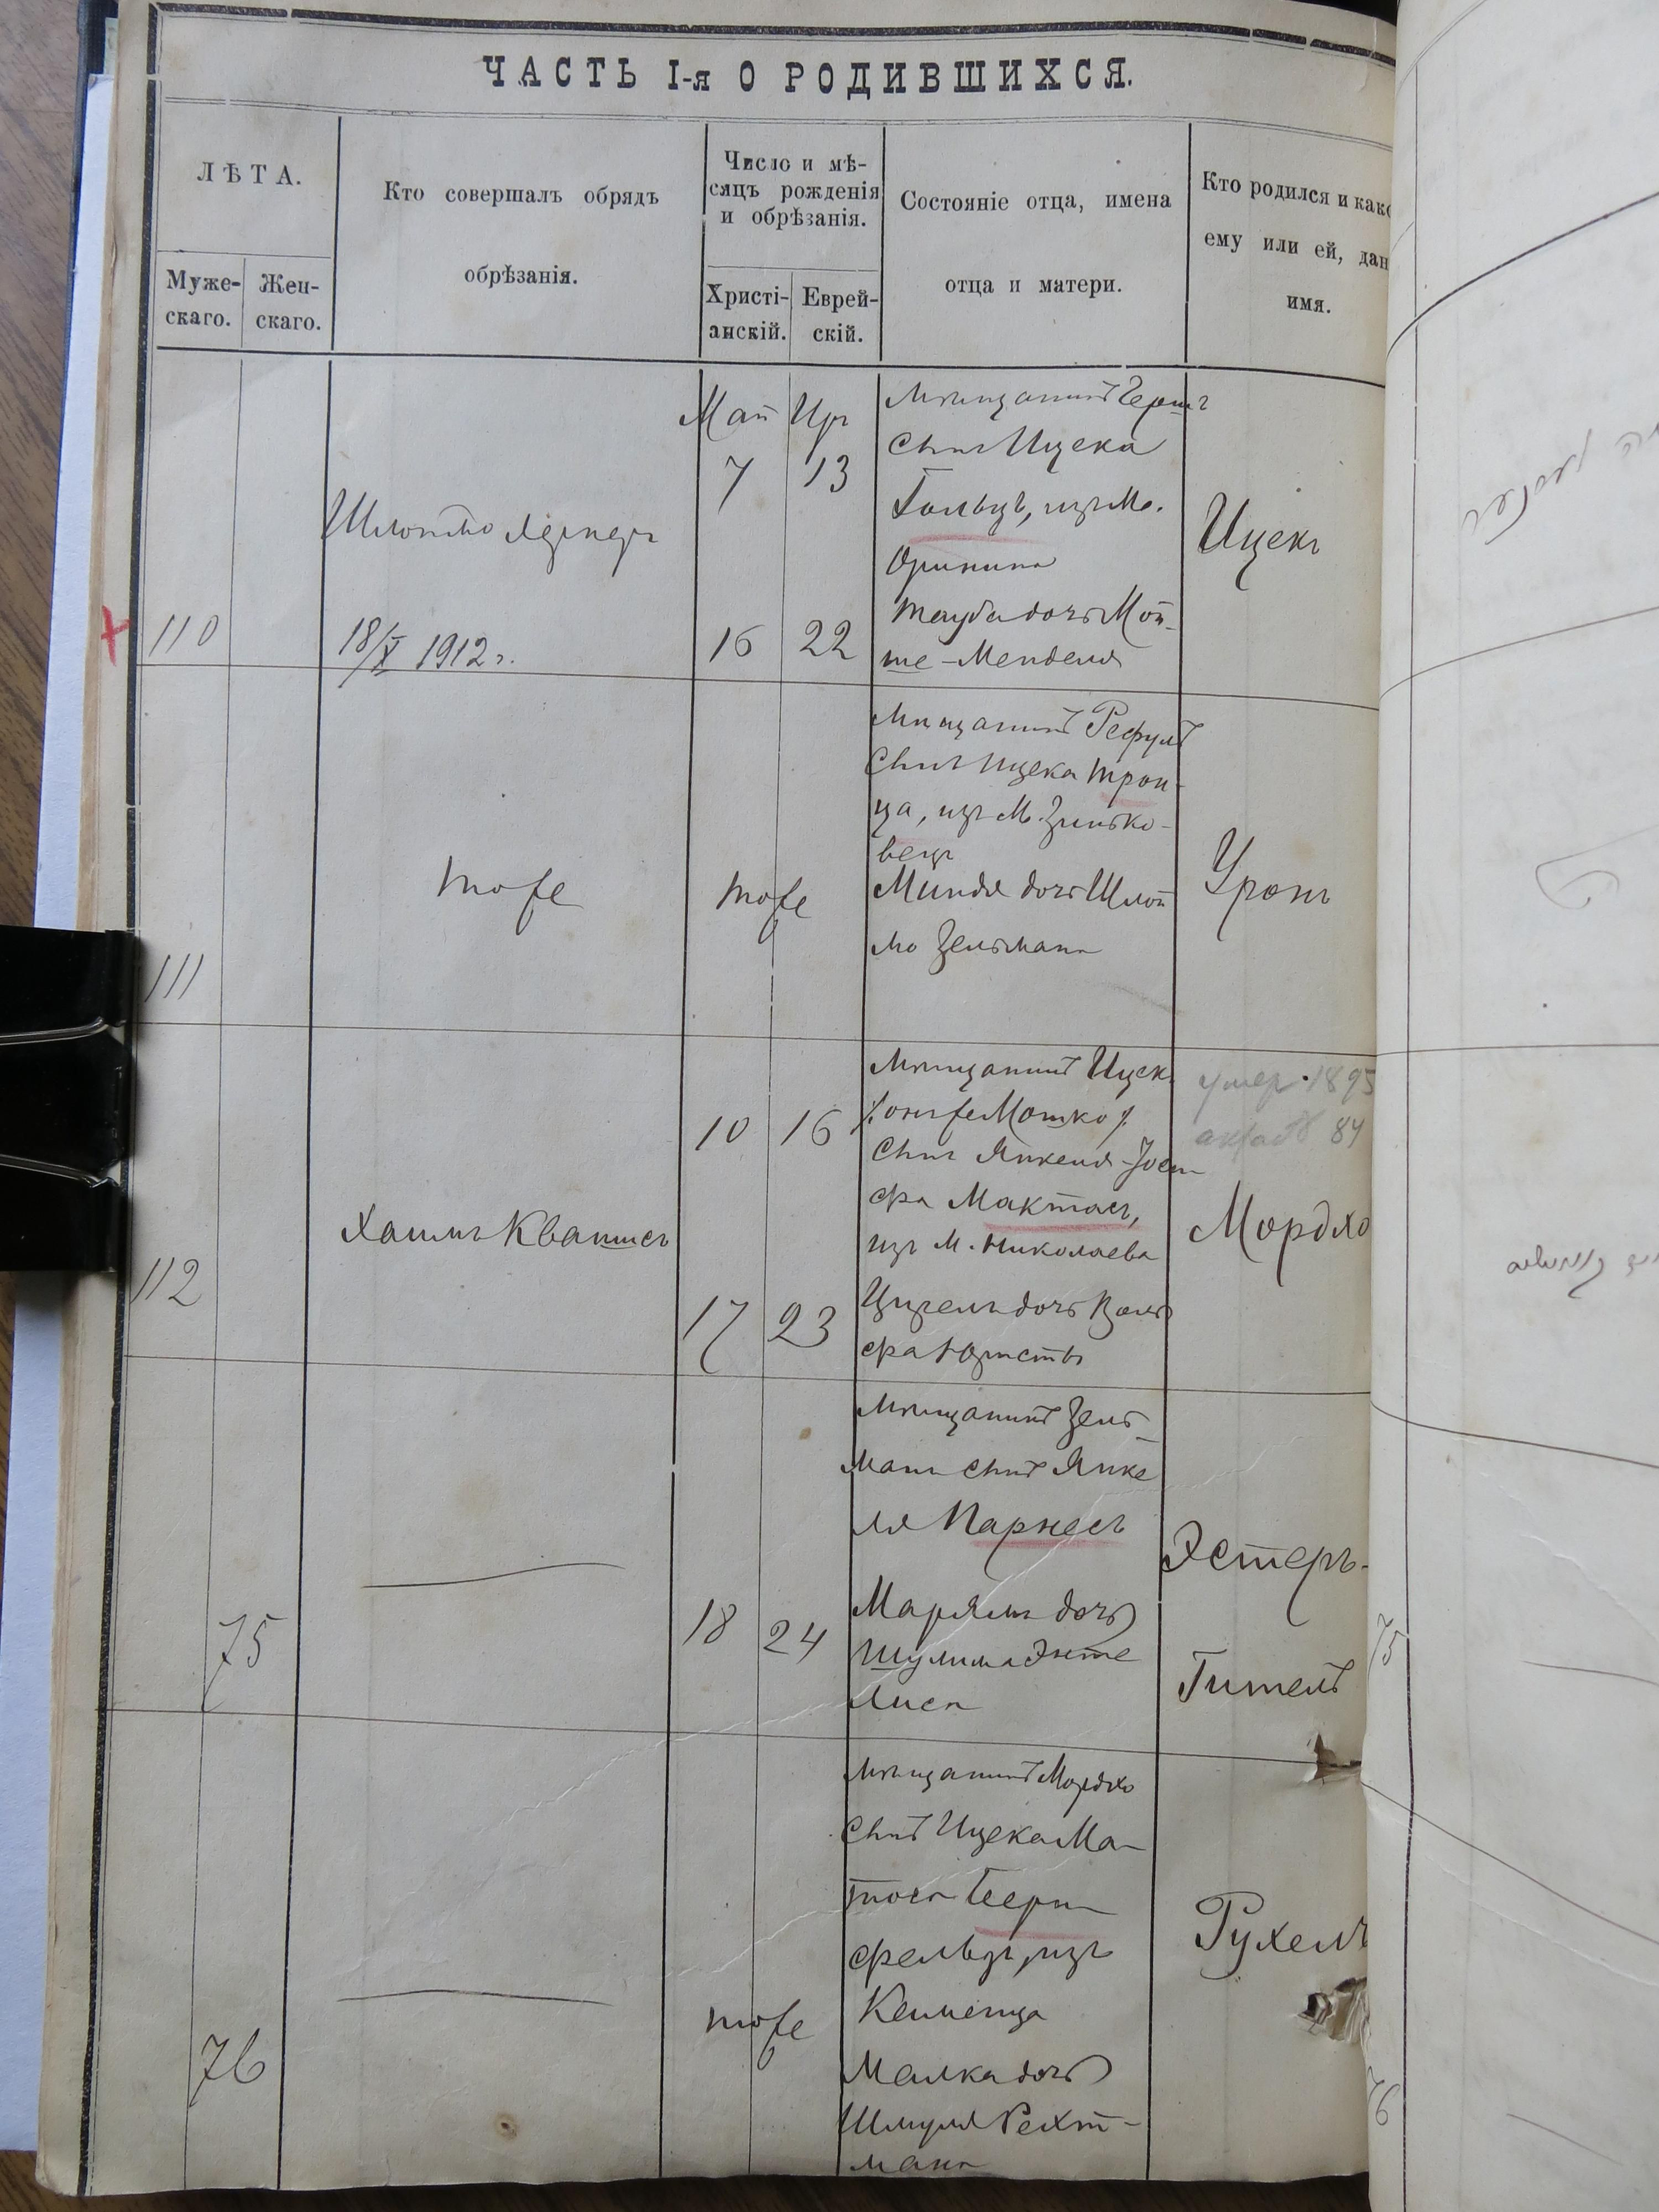 ЧАСТЬ I-я О РОДИВШИХСЯ.
ЛѢТА.
Муже-
скаго.
Жен-
скаго.
Кто совершалъ обрядъ
обрѣзанія.
Число и мѣ-
сяцъ рожденія
и обрѣзанія.
Христі-
анскій.
Еврей-
скій.
Состояніе отца, имена
отца и матери.
Кто родился и како
ему или ей, дан
имя.
110
Шлоймо
18/X 1912 г.
Май Ира
7 13
16 22
Мѣщанинъ Гершъ
сынъ Ицека
Гольцъ, изъ М.
Оринина
Тауба дочь Мой-
ше-Менделя
Ицекъ
111
тоже
тоже
Мѣщанинъ Рефулъ
сынъ Ицека Трой-
ца, изъ М. Зинько-
вецъ
Миндля дочь Шлой
мо Зельмана
112
Хаимъ Квашисъ
10 16
17 23
Мѣщанинъ Ицекъ
/: онъ же Мошко :/
сынъ Янкеля-Іосе
фа Мактасъ,
изъ М. Николаева
дочь Воль
фа
умер. 1895
актъ 84
Мордхо
75
18 24
Мѣщанинъ Зель-
манъ сынъ Янке
ля Парнесъ
Марьямъ дочь
Шулима Энте
лиса
Эстеръ-
Гитель
76
тоже
Мѣщанинъ Мордхо
сынъ Ицека Ма-
тоса Геерш
фельдъ, изъ
Каменца
Малка дочь
Шмуля Рехт-
мана
Рухель
75
76